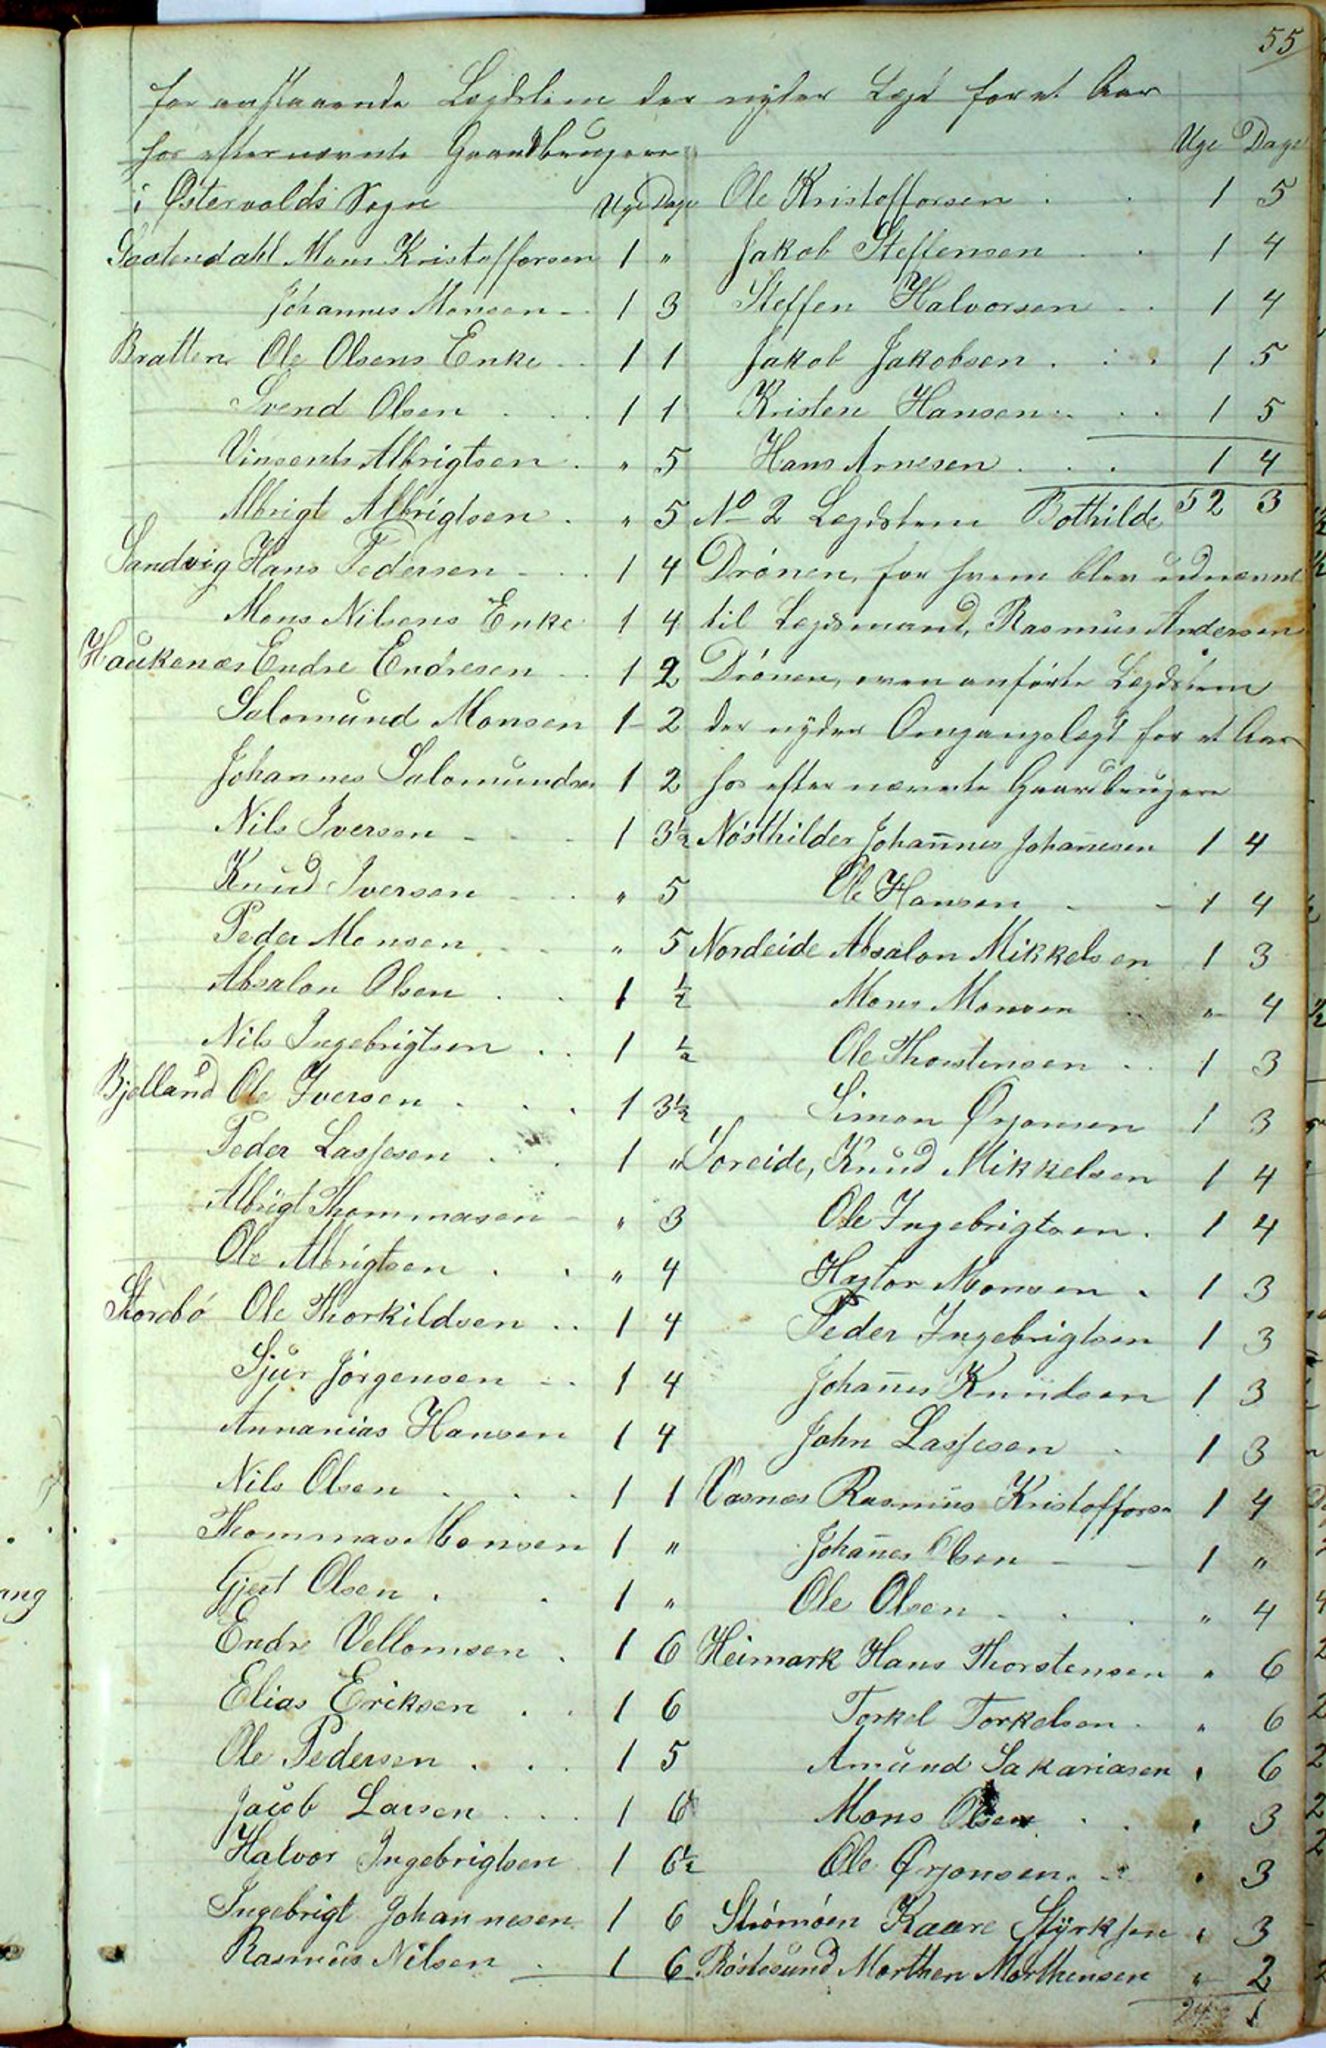 55
foranstaaende Lægdslem der nyder Lægd for et Aar
hos efternævnte Gaardbrugere
i Østervolds Sogn Uge Dage
Mons Kristoffersen 1 "
Johannes Monsen 1 3
Bratten Ole Olsens Enke 1 1
Svend Olsen 1 1
Vinsents Albrigtsen " 5
Albrigt Albrigtsen " 5
Sandvig Hans Pedersen 1 4
Mons Nilsens Enke 1 4
Haukenæs Endre Endresen 1 2
Salomund Monsen 1 2
Johannes Salomundsen 1 2
Nils Iversen 1 3½
Knud Iversen " 5
Peder Monsen " 5
Absalon Olsen 1 ½
Nils Ingebrigtsen 1 ½
Bjelland Ole Iversen 1 3½
Peder Lassesen 1 "
Albrigt Thommasen " 3
Ole Albrigtsen " 4
Storebø Ole Thorkildsen 1 4
Sjur Jørgensen 1 4
Annanias Hansen 1 4
Nils Olsen 1 1
Thommas Monsen 1 "
Gjert Olsen 1 "
Endre Vellomsen 1 6
Elias Eriksen 1 6
Ole Pedersen 1 5
Jacob Larsen 1 6
Halvor Ingebrigtsen 1 6½
Ingebrigt Johannesen 1 6
Rasmus Nilsen 1 6
Uge Dage
Ole Kristoffersen 1 5
Jakob Steffensen 1 4
Steffen Halvorsen 1 4
Jakob Jakobsen 1 5
Kristen Hansen 1 5
Hans Arnesen 1 4
52 3
No 2 Lægdslem Bothilde
Drönen, for hvem blev udnævnt
til Lægdsmand, Rasmus Andersen
Drönen, ovenanförte Lægdslem
der nyder Omgangslægd for et Aar
hos efternævnte Gaardbrugere
Nösthilder Johannes Johanesen 1 4
Ole Hansen 1 4
Nordeide Absalon Mikkelsen 1 3
Mons Monsen " 4
Ole Thorstensen 1 3
Simon Ørjansen 1 3
Söreide, Knud Mikkelsen 1 4
Ole Ingebrigtsen 1 4
Monsen 1 3
Peder Ingebrigtsen 1 3
Johanes Knudsen 1 3
John Lassesen 1 3
Vasnæs Rasmus Kristoffersn 1 4
Johanes Olsen 1 "
Ole Olsen " 4
Heimark Hans Thorstensen " 6
Torkel Torkelsen " 6
Amund Sakariasen " 6
Mons Olsen " 3
Ole Ørjansen " 3
Strömöen Kaare Styrksen " 3
Röstesund Morthen Morthensen " 2
24 1